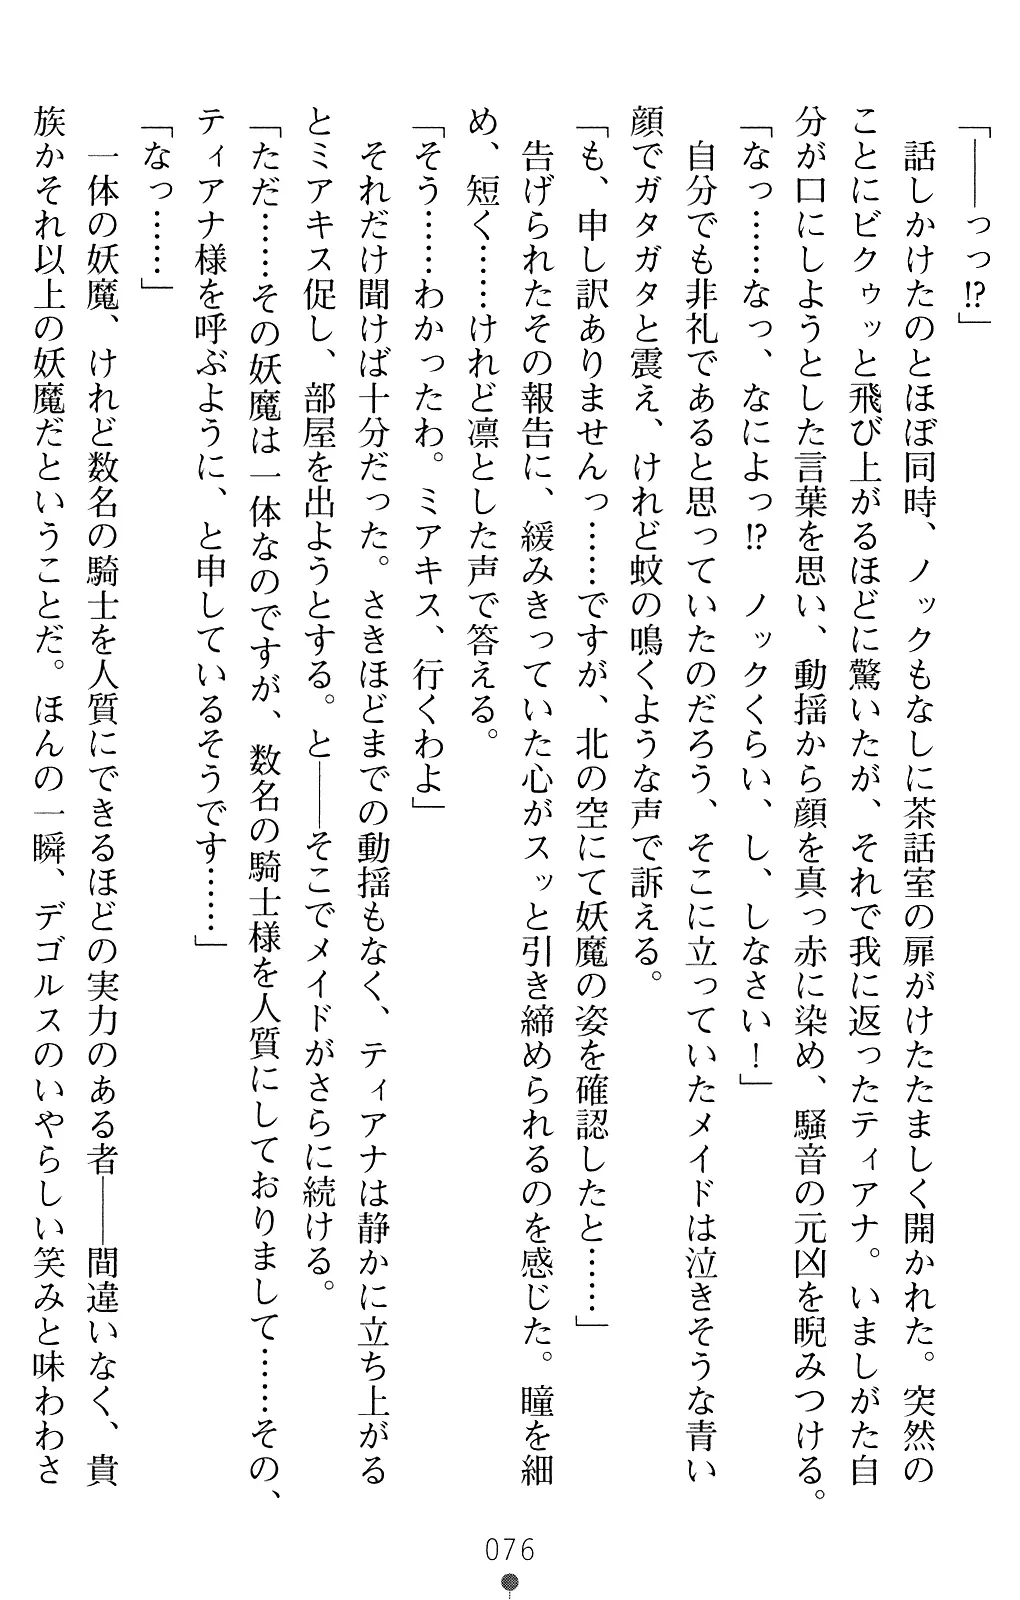 「――っっ!?」
　話しかけたのとほぼ同時、ノックもなしに茶話室の扉がけたたましく開かれた。突然の
ことにビクゥッと飛び上がるほどに驚いたが、それで我に返ったティアナ。いましがた自
分が口にしようとした言葉を思い、動揺から顔を真っ赤に染め、騒音の元凶を睨みつける。
「なっ……なっ、なによっ!?　ノックくらい、し、しなさい！」
　自分でも非礼であると思っていたのだろう、そこに立っていたメイドは泣きそうな青い
顔でガタガタと震え、けれど蚊の鳴くような声で訴える。
「も、申し訳ありませんっ……ですが、北の空にて妖魔の姿を確認したと……」
　告げられたその報告に、緩みきっていた心がスッと引き締められるのを感じた。瞳を細
め、短く……けれど凛とした声で答える。
「そう……わかったわ。ミアキス、行くわよ」
　それだけ聞けば十分だった。さきほどまでの動揺もなく、ティアナは静かに立ち上がる
とミアキス促し、部屋を出ようとする。と――そこでメイドがさらに続ける。
「ただ……その妖魔は一体なのですが、数名の騎士様を人質にしておりまして……その、
ティアナ様を呼ぶように、と申しているそうです……」
「なっ……」
　一体の妖魔、けれど数名の騎士を人質にできるほどの実力のある者――間違いなく、貴
族かそれ以上の妖魔だということだ。ほんの一瞬、デゴルスのいやらしい笑みと味わわさ
076